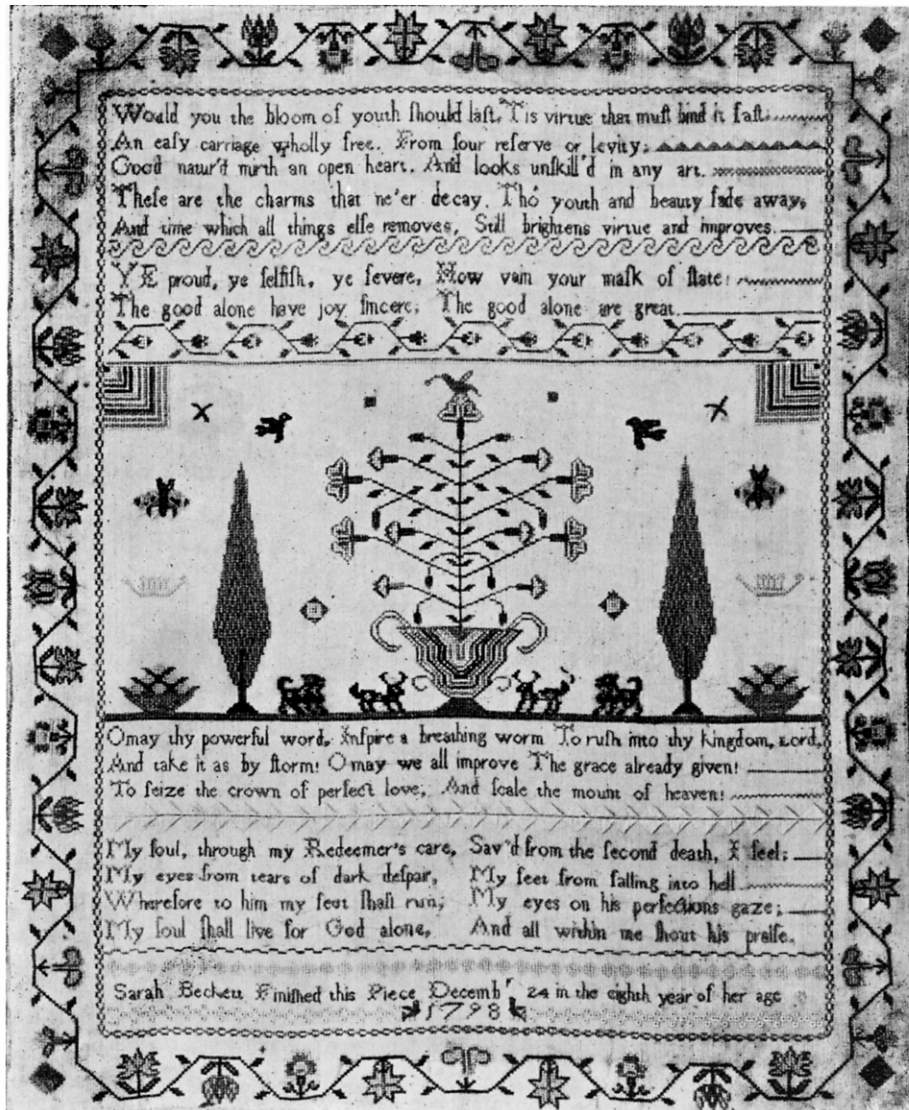 Would you the bloom of youth ſhould laſt, Tis virtue that muſt bind it faſt.
An eaſy carriage wholly free. From ſour reſerve or levity;
Good natur'd mirth an open heart. And looks unſkill'd in any art.
Theſe are the charms that ne'er decay. Tho' youth and beauty fade away,
And time which all things elſe removes, Still brightens virtue and improves.
YE proud, ye ſelfiſh, ye ſevere, How vain your maſk of ſtate:
The good alone have joy ſincere; The good alone are great.
O may thy powerful word, Inſpire a breathing worm To ruſh into thy kingdom, Lord,
And take it as by ſtorm! O may we all improve The grace already given!
To ſeize the crown of perfect love, And ſcale the mount of heaven!
My ſoul, through my Redeemer's care, Sav'd from the ſecond death, I feel;
My eyes from tears of dark deſpair, My feet from falling into hell
Wherefore to him my feet ſhall run; My eyes on his perfections gaze;
My ſoul ſhall live for God alone, And all within me ſhout his praiſe.
Sarah Beckett Finiſhed this Piece Decembr 24 in the eighth year of her age
1798